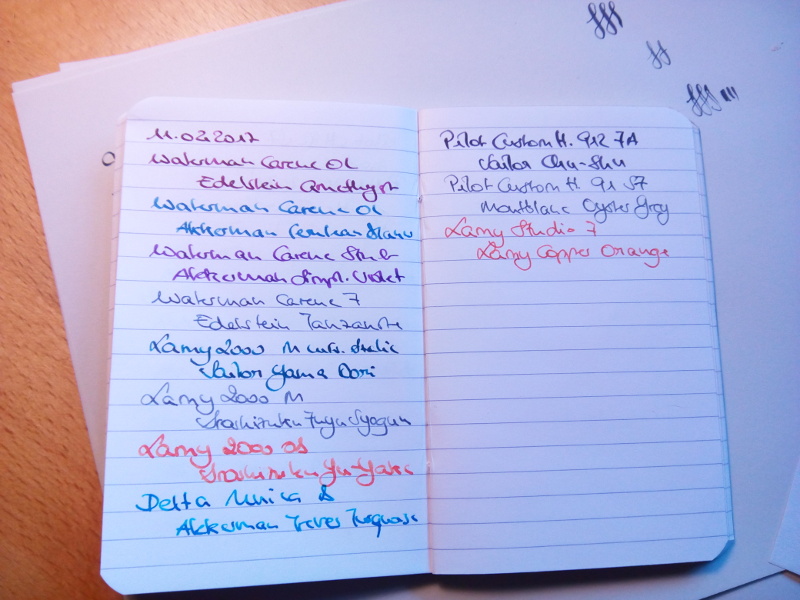 11.02.2017
Waterman Carene OL
Edelstein Amethyst
Waterman Carene OL
Akkerman
Waterman Carene Stub
Akkerman Simpl. Violet
Waterman Carene F
Edelstein Tanzanite
Lamy 2000 M curs. italic
Sailor Yama Dori
Lamy 2000 M
Iroshizuku Fuyu Syogun
Lamy 2000 OB
Iroshizuku Yu-Yake
Delta Unica B
Akkerman Turquoise
Pilot Custom H. 912 FA
Sailor Chu-Shu
Pilot Custom H 91 SF
Montblanc Oyster Grey
Lamy Studio F
Lamy Copper Orange